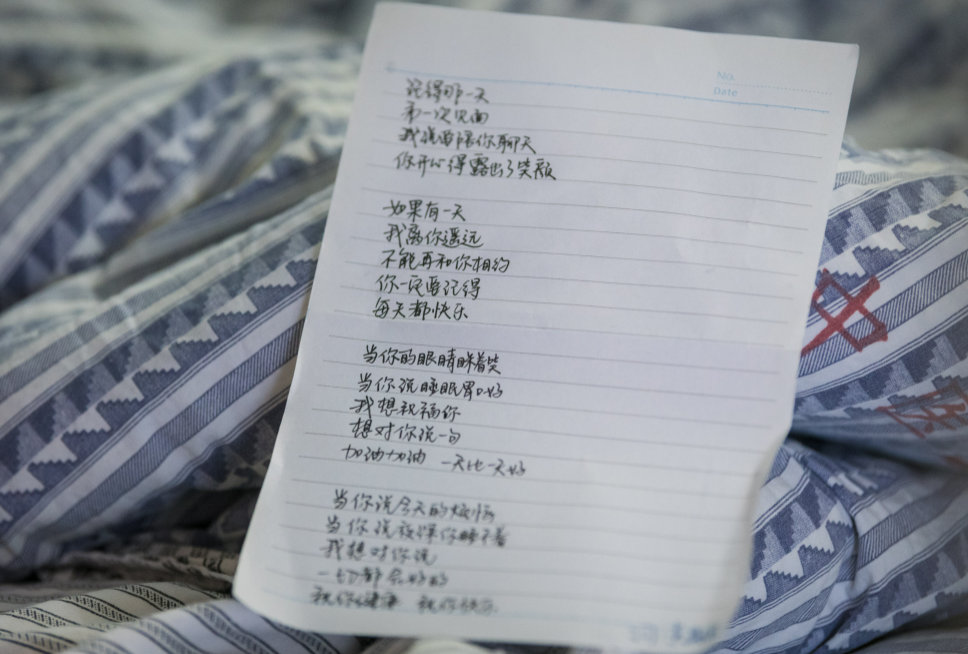 No.
Date
记得那一天
第一次见面
我说要陪你聊天
你开心得露出了笑颜
如果有一天
我离你遥远
不能再和你相约
你一定要记得
每天都快乐
当你的眼睛眯着笑
当你说睡眠胃口好
我想祝福你
想对你说一句
加油加油 一天比一天好
当你说今天的烦恼
当你说夜深你睡不着
我想对你说
一切都会好的
祝你健康 祝你快乐
中